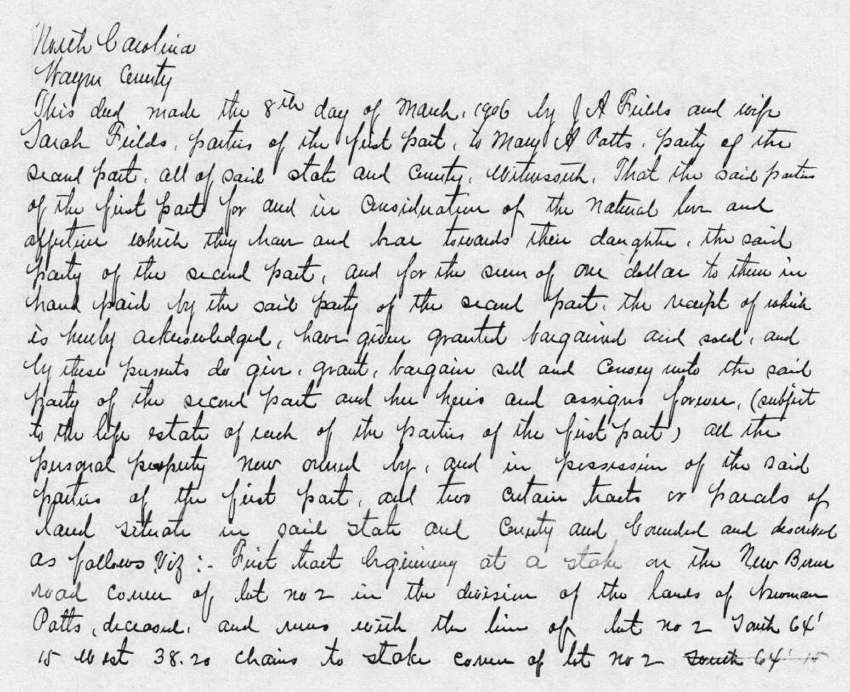 North Carolina
Wayne County
This deed made the 8th day of March, 1906 by J A Fields and wife
Sarah Fields, parties of the first part, to Mary A Potts, party of the
second part, all of said state and County, Witnesseth, That the said parties
of the first part for and in Consideration of the Natural love and
affection which they have and bear towards their daughter, the said
party of the second part, and for the sum of one dollar to them in
hand paid by the said party of the second part, the receipt of which
is hereby acknowledged, have given granted bargained and sold, and
by these presents do give, grant, bargain sell and Convey unto the said
party of the second part and her heirs and assigns forever, (subject
to the life estate of each of the parties of the first part) all the
personal property now owned by, and in possession of the said
parties of the first part, and two certain tracts or parcels of
land situate in said state and County and bounded and described
as follows Viz:- First tract beginning at a stake on the New Berne
road corner of lot no 2 in the division of the lands of Newman
Potts, deceased, and runs with the line of lot no 2 South 64'
15 West 38.20 chains to stake corner of lot no 2 South 64' 15